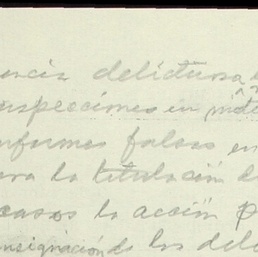 uencia delictuosa
inspecciones en
informes falsos en
para la titulación d
casos la acción p
onsignación de los del